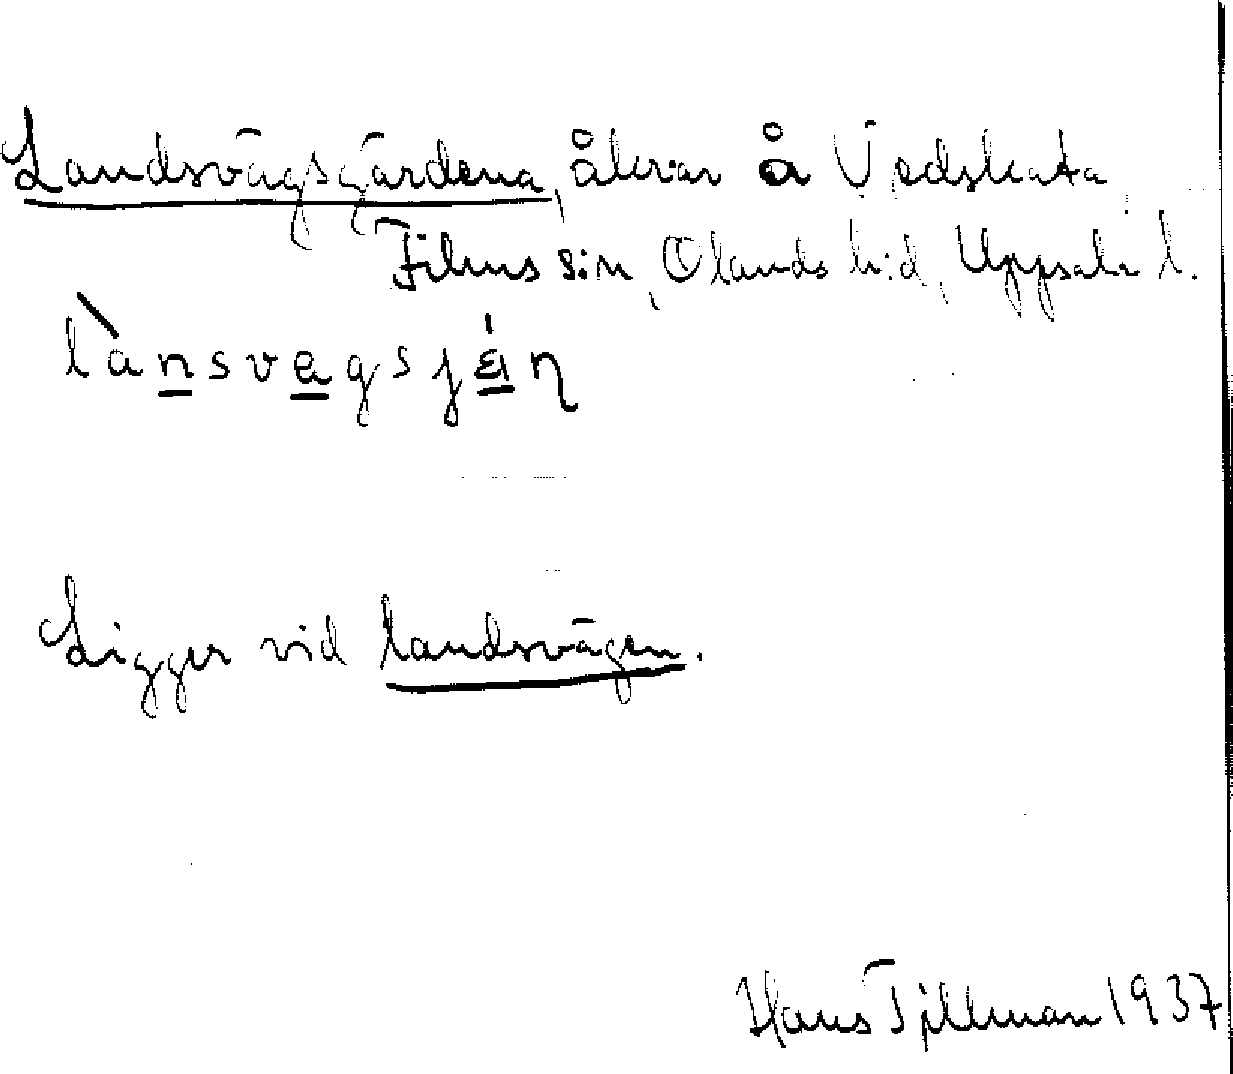 Landsvägsgärdena, åkrar å Vedskata
Films s:n, Olands h:d, Uppsala l.
Ligger vid landsvägen.
Hans Tjillman 1937